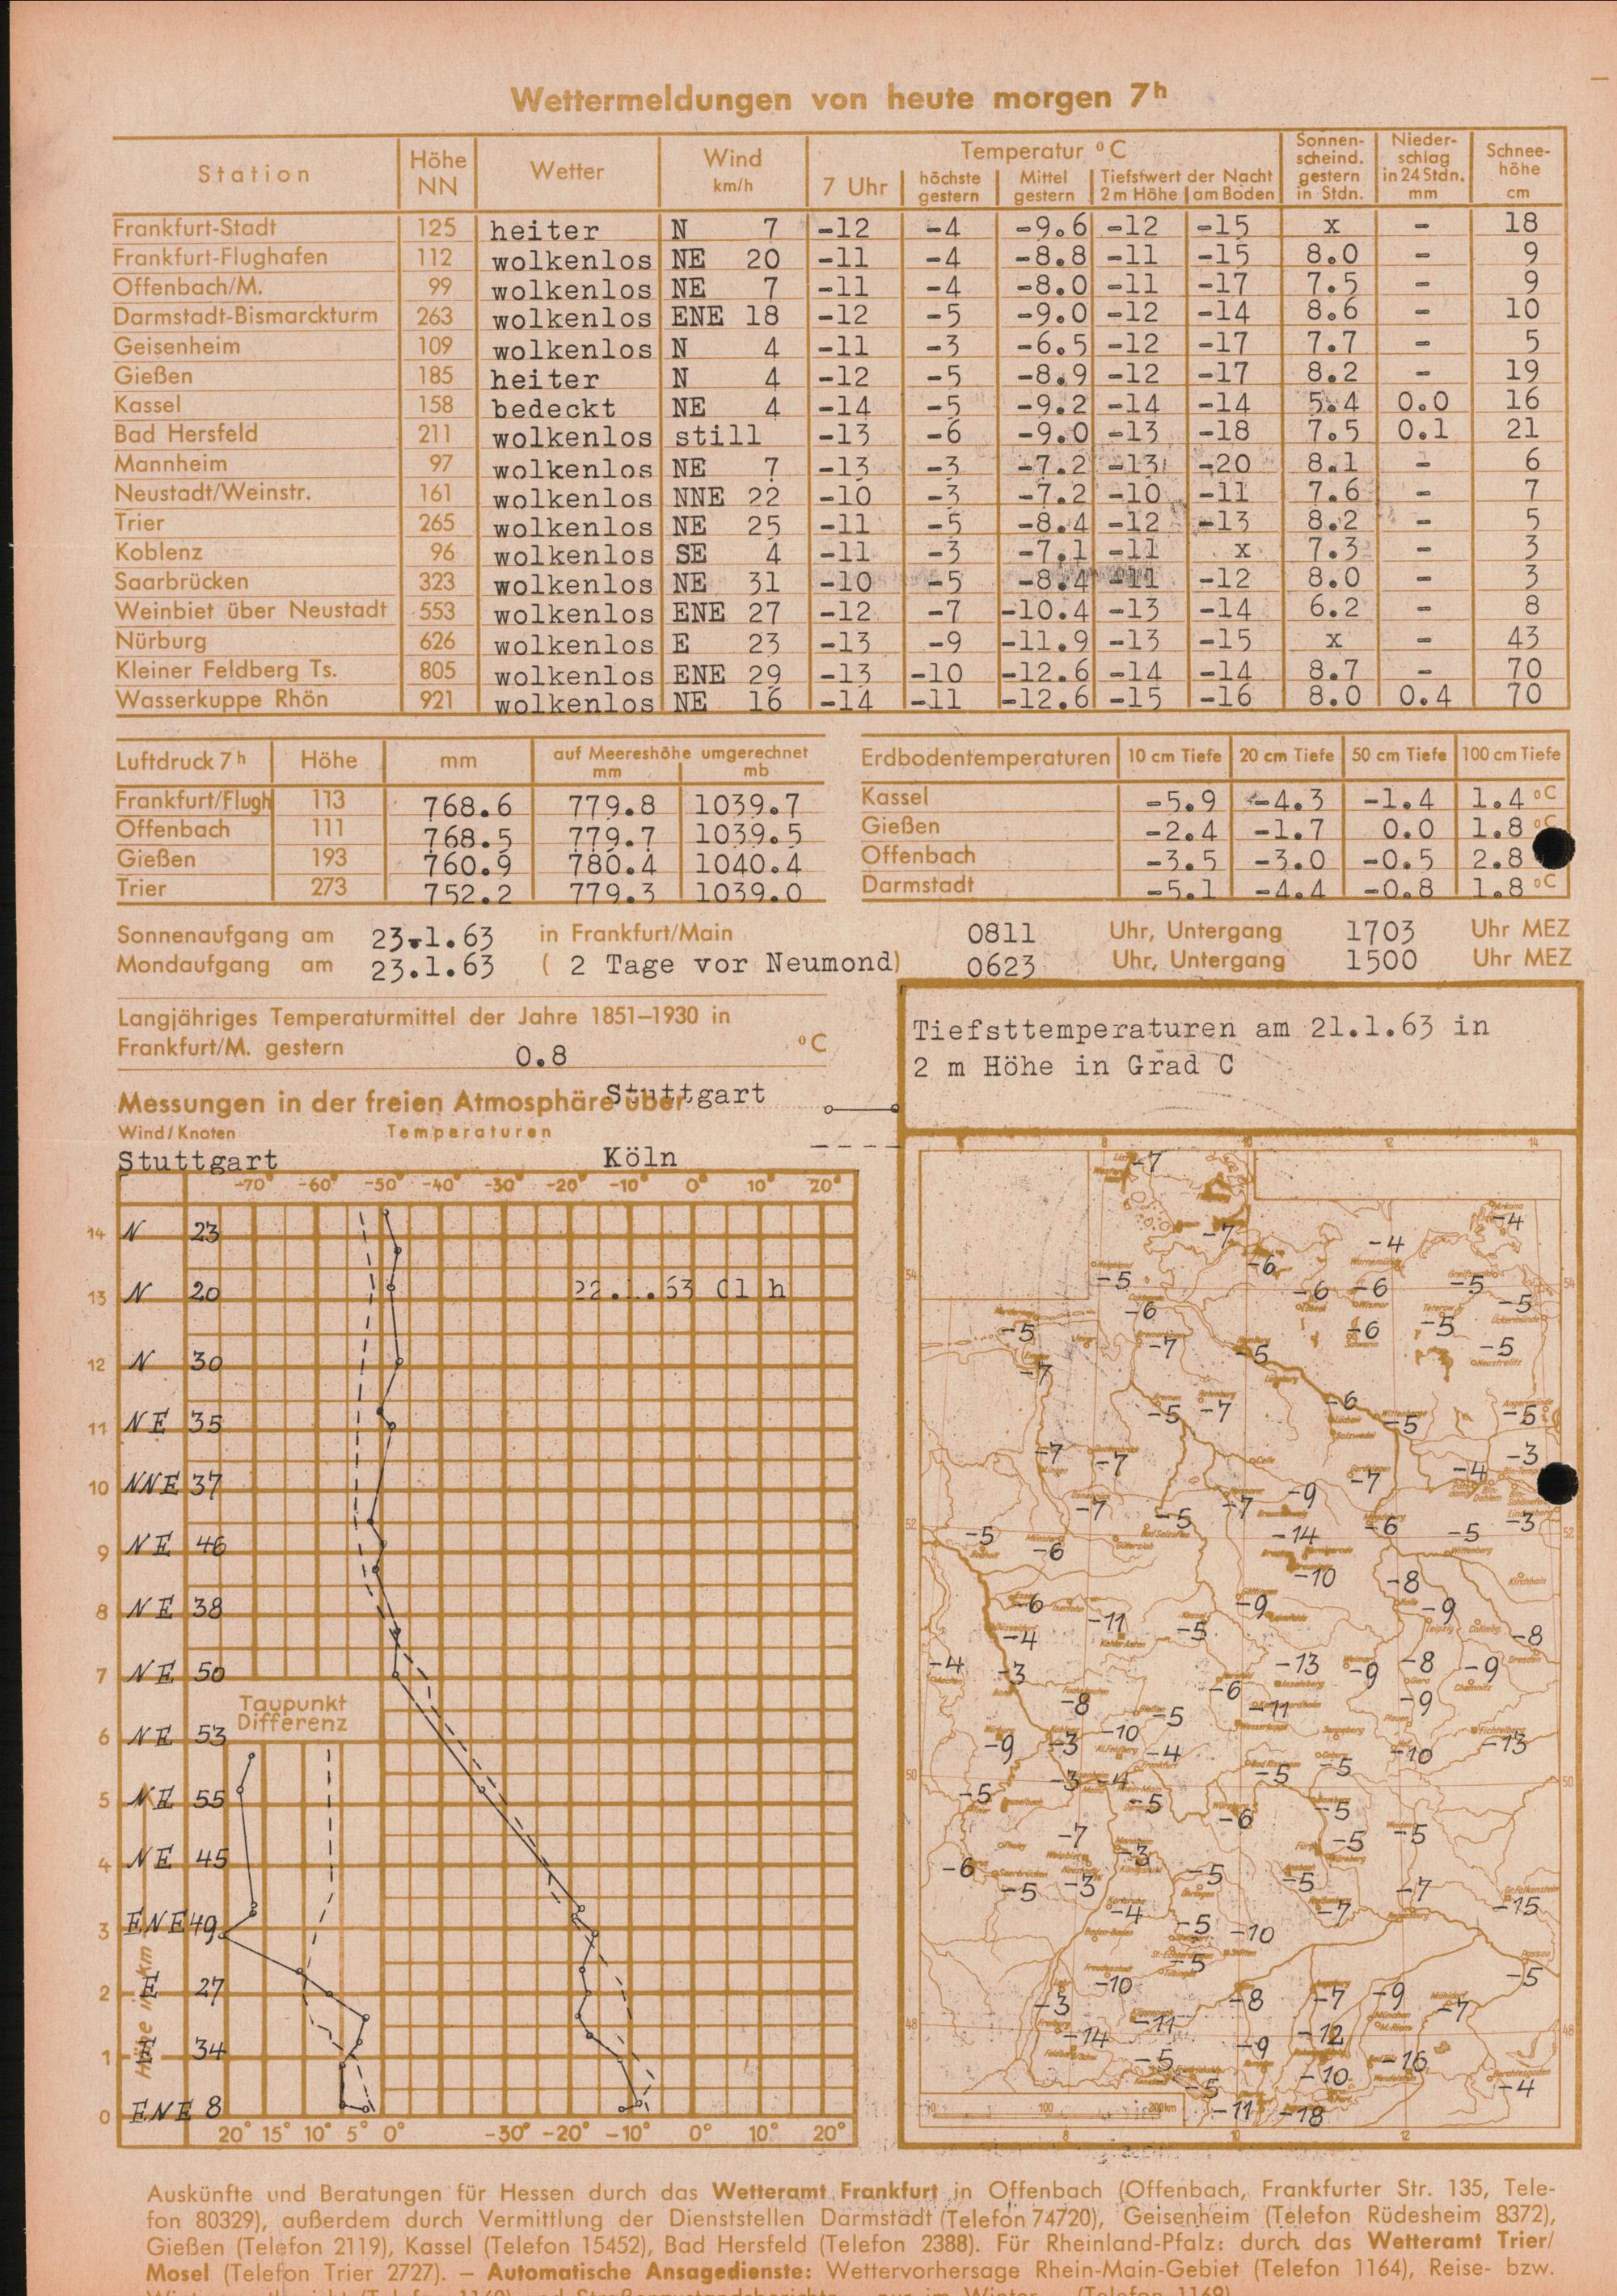 Wettermeldungen von heute morgen 7h
Station Höhe NN Wetter Wind km/h Temperatur °C Sonnenscheind. gestern in Stdn. Niederschlag in 24 Stdn. mm Schneehöhe cm
7 Uhr höchste gestern Mittel gestern Tiefstwert der Nacht 2m Höhe am Boden
Frankfurt-Stadt 125 heiter N 7 -12 -4 -9.6 -12 -15 x - 18
Frankfurt-Flughafen 112 wolkenlos NE 20 -11 -4 -8.8 -11 -15 8.0 - 9
Offenbach/M. 99 wolkenlos NE 7 -11 -4 -8.0 -11 -17 7.5 - 9
Darmstadt-Bismarckturm 263 wolkenlos ENE 18 -12 -5 -9.0 -12 -14 8.6 - 10
Geisenheim 109 wolkenlos N 4 -11 -3 -6.5 -12 -17 7.7 - 5
Gießen 185 heiter N 4 -12 -5 -8.9 -12 -17 8.2 - 19
Kassel 158 bedeckt NE 4 -14 -5 -9.2 -14 -14 5.4 0.0 16
Bad Hersfeld 211 wolkenlos still -13 -6 -9.0 -13 -18 7.5 0.1 21
Mannheim 97 wolkenlos NE 7 -13 -3 -7.2 -13 -20 8.1 - 6
Neustadt/Weinstr. 161 wolkenlos NNE 22 -10 -3 -7.2 -10 -11 7.6 - 7
Trier 265 wolkenlos NE 25 -11 -5 -8.4 -12 -13 8.2 - 5
Koblenz 96 wolkenlos SE 4 -11 -3 -7.1 -11 x 7.3 - 3
Saarbrücken 323 wolkenlos NE 31 -10 -5 -8.4 -11 -12 8.0 - 3
Weinbiet über Neustadt 553 wolkenlos ENE 27 -12 -7 -10.4 -13 -14 6.2 - 8
Nürburg 626 wolkenlos E 23 -13 -9 -11.9 -13 -15 x - 43
Kleiner Feldberg Ts. 805 wolkenlos ENE 29 -13 -10 -12.6 -14 -14 8.7 - 70
Wasserkuppe Rhön 921 wolkenlos NE 16 -14 -11 -12.6 -15 -16 8.0 0.4 70
Luftdruck 7h Höhe mm auf Meereshöhe umgerechnet mm mb
Frankfurt/Flugh 113 768.6 779.8 1039.7
Offenbach 111 768.5 779.7 1039.5
Gießen 193 760.9 780.4 1040.4
Trier 273 752.2 779.3 1039.0
Erdbodentemperaturen 10 cm Tiefe 20 cm Tiefe 50 cm Tiefe 100 cm Tiefe
Kassel -5.9 -4.3 -1.4 1.4 °C
Gießen -2.4 -1.7 0.0 1.8 °C
Offenbach -3.5 -3.0 -0.5 2.8
Darmstadt -5.1 -4.4 -0.8 1.8 °C
Sonnenaufgang am 23.1.63 in Frankfurt/Main 0811 Uhr, Untergang 1703 Uhr MEZ
Mondaufgang am 23.1.63 ( 2 Tage vor Neumond) 0623 Uhr, Untergang 1500 Uhr MEZ
Langjähriges Temperaturmittel der Jahre 1851–1930 in
Frankfurt/M. gestern 0.8 °C
Messungen in der freien Atmosphäre über Stuttgart
Wind/Knoten Temperaturen
Stuttgart Köln
-70° -60° -50° -40° -30° -20° -10° 0° 10° 20°
14 N 23
13 N 20 22. .63 01 h
12 N 30
11 NE 35
10 NNE 37
9 NE 46
8 NE 38
7 NE 50
Taupunkt
Differenz
6 NE 53
5 NE 55
4 NE 45
3 ENE 49
2 E 27
1 34
0 ENE 8
Höhe in km
20° 15° 10° 5° 0° -30° -20° -10° 0° 10° 20°
Tiefsttemperaturen am 21.1.63 in
2 m Höhe in Grad C
8 10 12 14
-7
-4
-7 -4
-6
-5 -6 -6 -5
-6 -5
-5 -6 -5
-7 -5 -5
-7
-6
-5 -7 -5 -5
-7 -7 -7 -4 -3
-9
-7 -5 -7 -6 -3
-5 -6 -14 -5
-10 -8
-6 -11 -9 -9
-4 -5 -8
-4 -3 -13 -9 -8 -9
-8 -6 -11 -9
-9 -3 -10 -5 -10 -13
-4 -5 -5
-5 -3 -4 -5 -6 -5
-7 -3 -5 -5
-6 -5 -3 -5 -5 -7
-4 -7 -15
-5 -10
-5
-10 -5
-3 -8 -7 -9 -7
-14 -11 -12
-5 -9 -16
-5 -10 -4
-11 -18
0 100 200km
8 10 12
Auskünfte und Beratungen für Hessen durch das Wetteramt Frankfurt in Offenbach (Offenbach, Frankfurter Str. 135, Tele-
fon 80329), außerdem durch Vermittlung der Dienststellen Darmstadt (Telefon 74720), Geisenheim (Telefon Rüdesheim 8372),
Gießen (Telefon 2119), Kassel (Telefon 15452), Bad Hersfeld (Telefon 2388). Für Rheinland-Pfalz: durch das Wetteramt Trier/
Mosel (Telefon Trier 2727). – Automatische Ansagedienste: Wettervorhersage Rhein-Main-Gebiet (Telefon 1164), Reise- bzw.